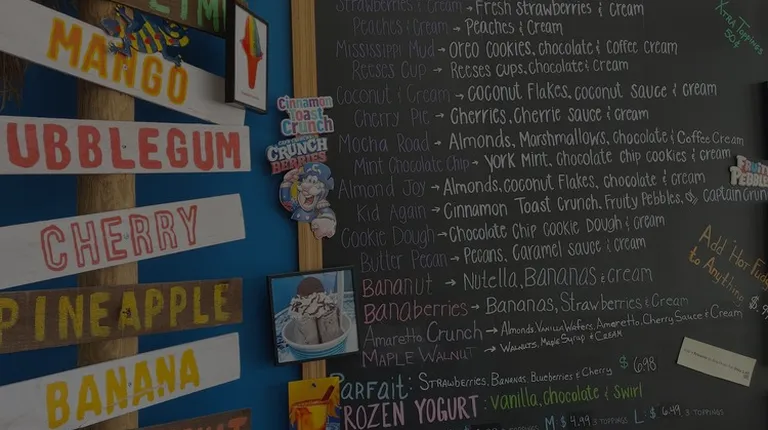 LIME
MANGO
UBBLEGUM
CHERRY
PINEAPPLE
BANANA
Cinnamon
Toast
Crunch
CRUNCH
BERRIES
FRUITY
PEBBLES
Strawberries & Cream → Fresh strawberries & cream
Peaches & Cream → Peaches & Cream
Mississippi Mud → Oreo cookies, chocolate & coffee cream
Reeses Cup → Reeses cups, chocolate & cream
Coconut & Cream → Coconut flakes, coconut sauce & cream
Cherry Pie → Cherries, Cherrie sauce & cream
Mocha Road → Almonds, Marshmallows, chocolate & Coffee Cream
Mint Chocolate Chip → York Mint, chocolate chip cookies & cream
Almond Joy → Almonds, coconut flakes, chocolate & cream
Kid Again → Cinnamon Toast Crunch, Fruity Pebbles, or Captain Crun
Cookie Dough → Chocolate Chip cookie Dough & cream
Butter Pecan → Pecans, Caramel sauce & cream
Bananut → Nutella, Bananas & cream
Banaberries → Bananas, Strawberries & Cream
Amaretto Crunch → Almonds, Vanilla Wafers, Amaretto, Cherry Sauce & Cream
Maple Walnut → Walnuts, Maple Syrup & Cream
Parfait: Strawberries, Bananas, Blueberries & Cherry $6.98
FROZEN YOGURT: vanilla, chocolate & Swirl
M: $4.99 3 TOPPINGS L: $6.49, 3 TOPPINGS
Xtra Toppings
50¢
Add Hot Fudg
to Anything
$.9